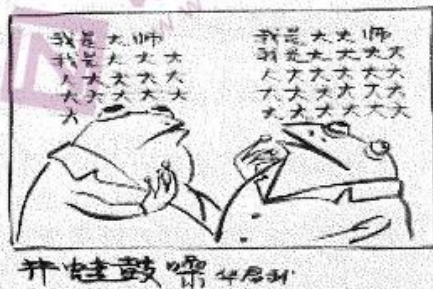 我是大师
我是大大大
人大大大大
大大大大大
大
我是大大师
我是大大大大
人大大大大大
大大大大大大
大大大大大大
井蛙鼓噪 华君武